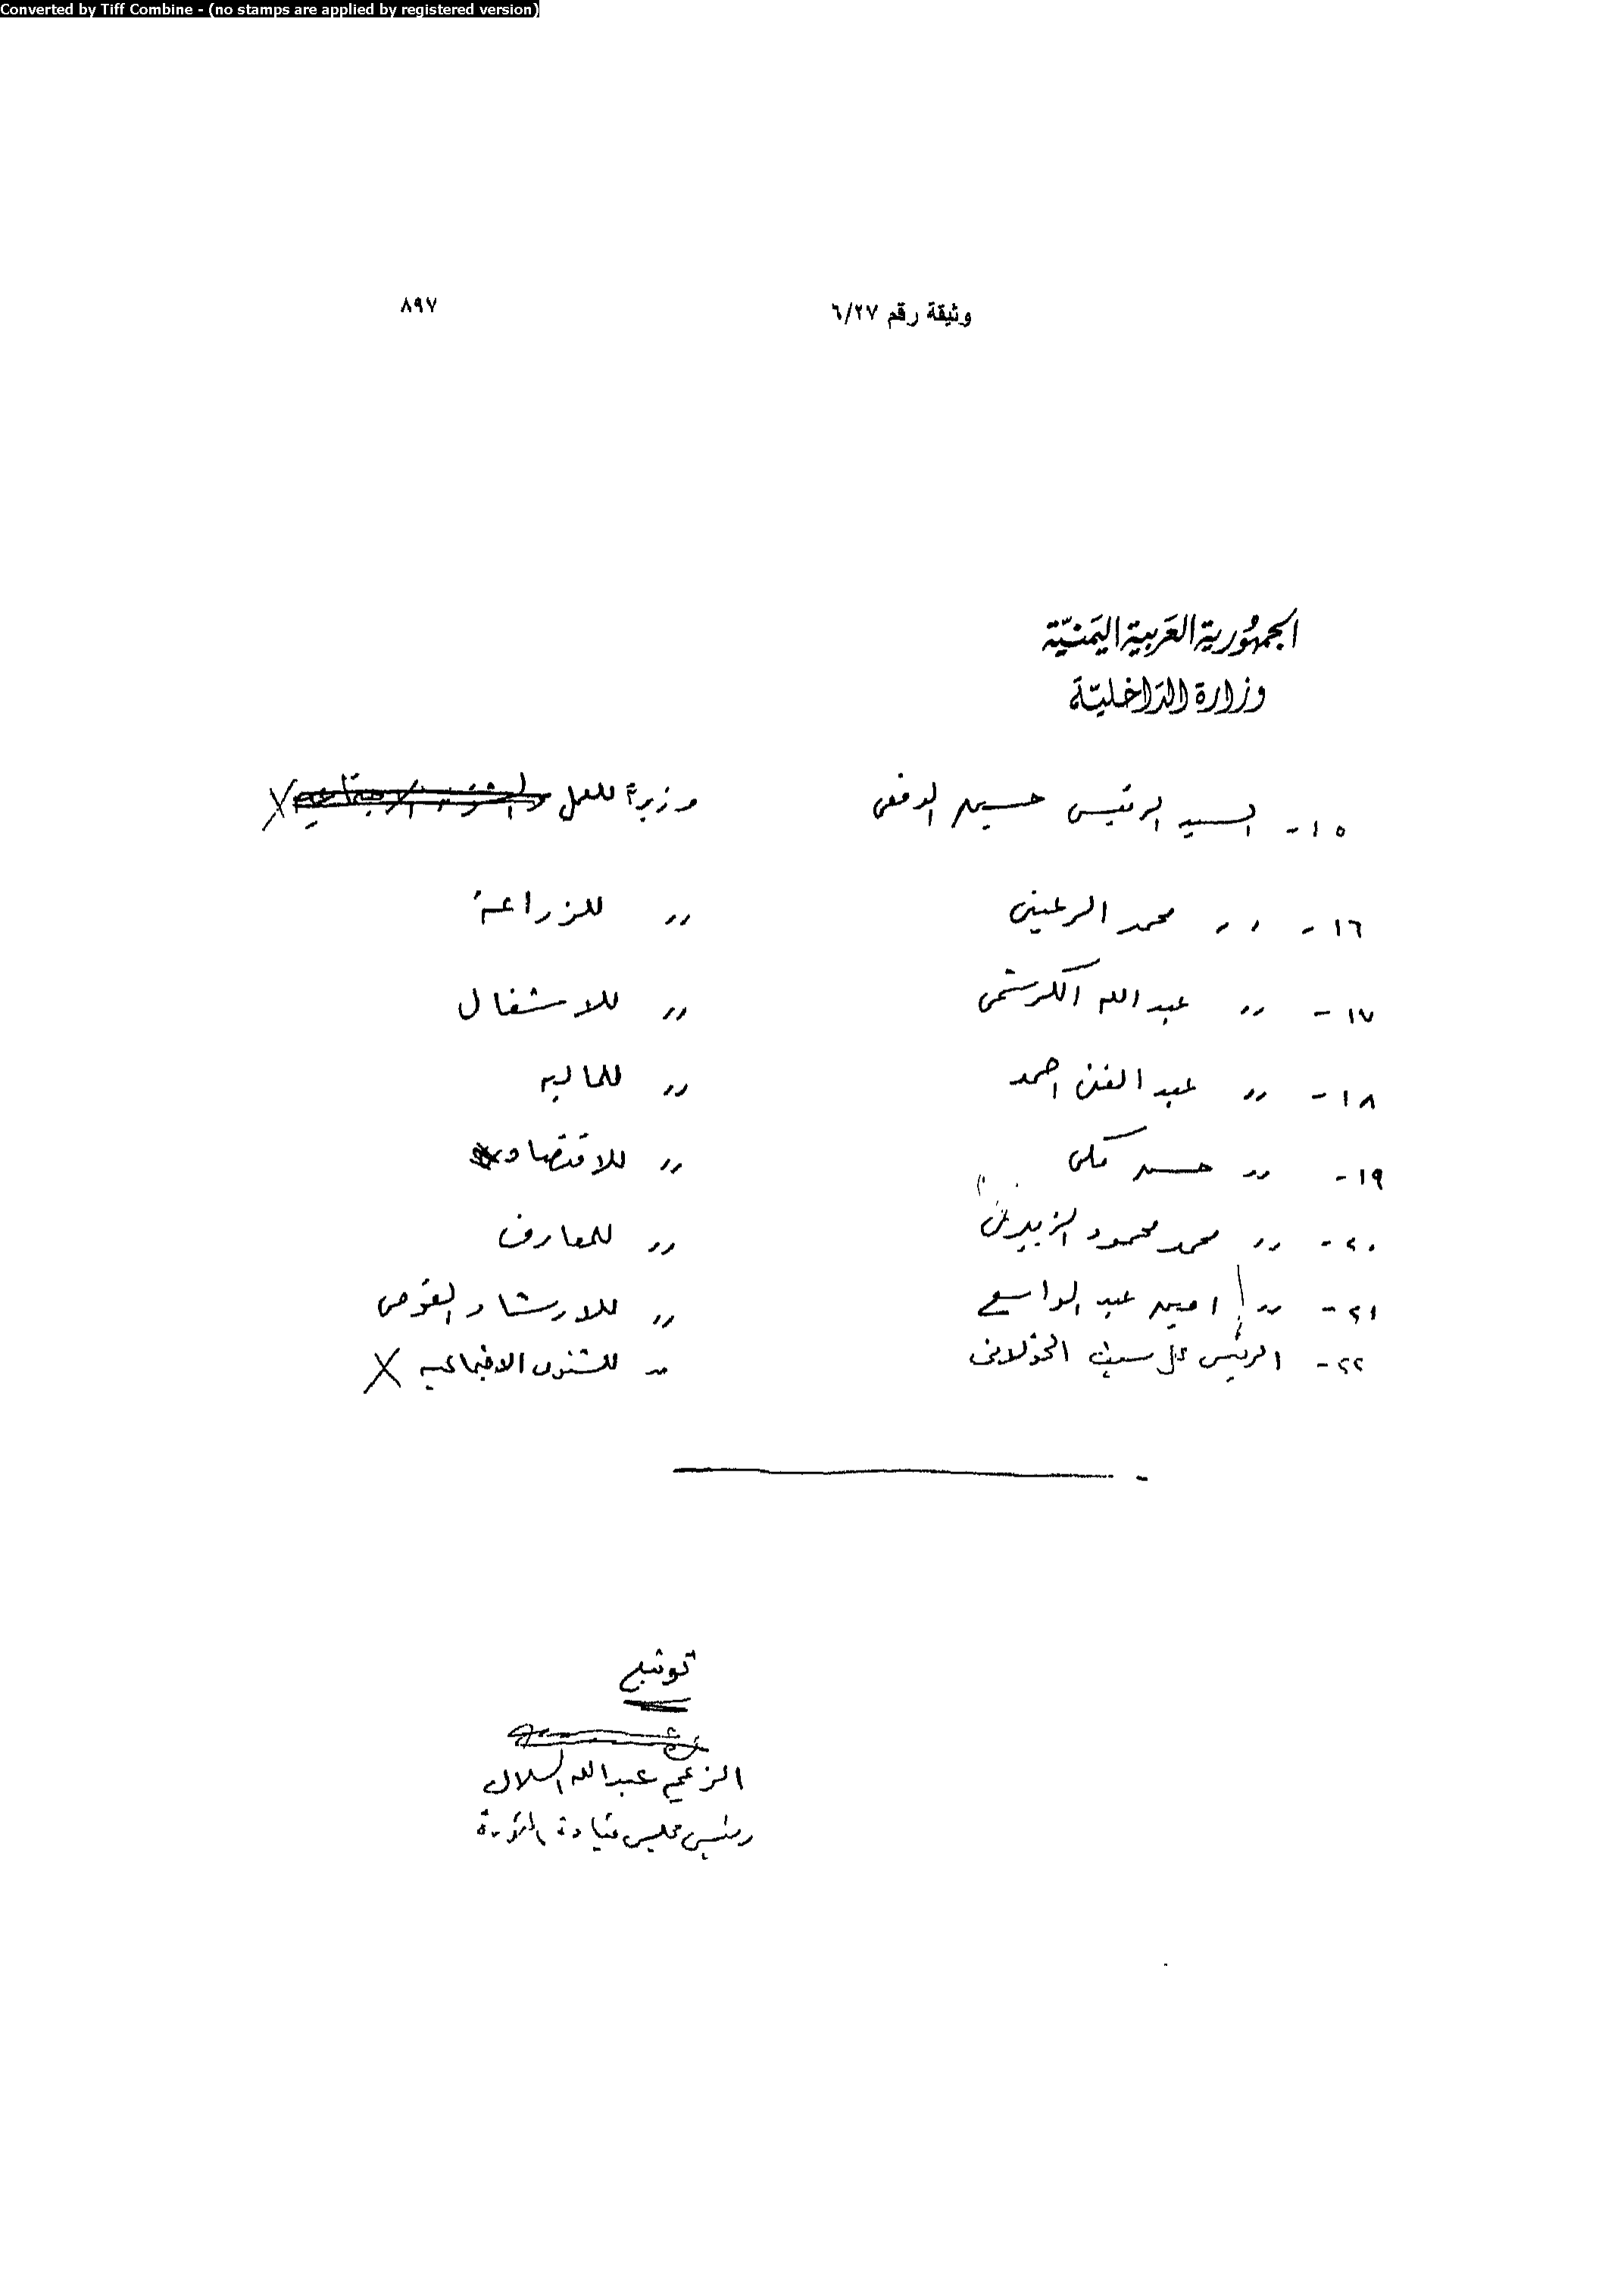 Converted by Tiff Combine - (no stamps are applied by registered version)
وثيقة رقم ٦/٢٧ ٨٩٧
الجمهورية العربية اليمنية
وزارة الداخلية
١٥- السيد الرئيس حسين الدفعي وزيراً للعمل والشئون الاجتماعية X
١٦- ,, محمد الرعيني ,, للزراعة
١٧- ,, عبد الله الكرشمي ,, للاشغال
١٨- ,, عبد الغني احمد ,, للماليه
١٩- ,, حسن مكي ,, للاقتصاد
٢٠- ,, محمد محمود الزبيري ,, للمعارف
٢١- ,, امين عبد الواسع ,, للارشاد القومي
٢٢- الرئيس علي سيف الخولاني ,, للشئون الاجتماعيه X
توقيع
الزعيم عبدالله السلال
رئيس مجلس قيادة الثورة